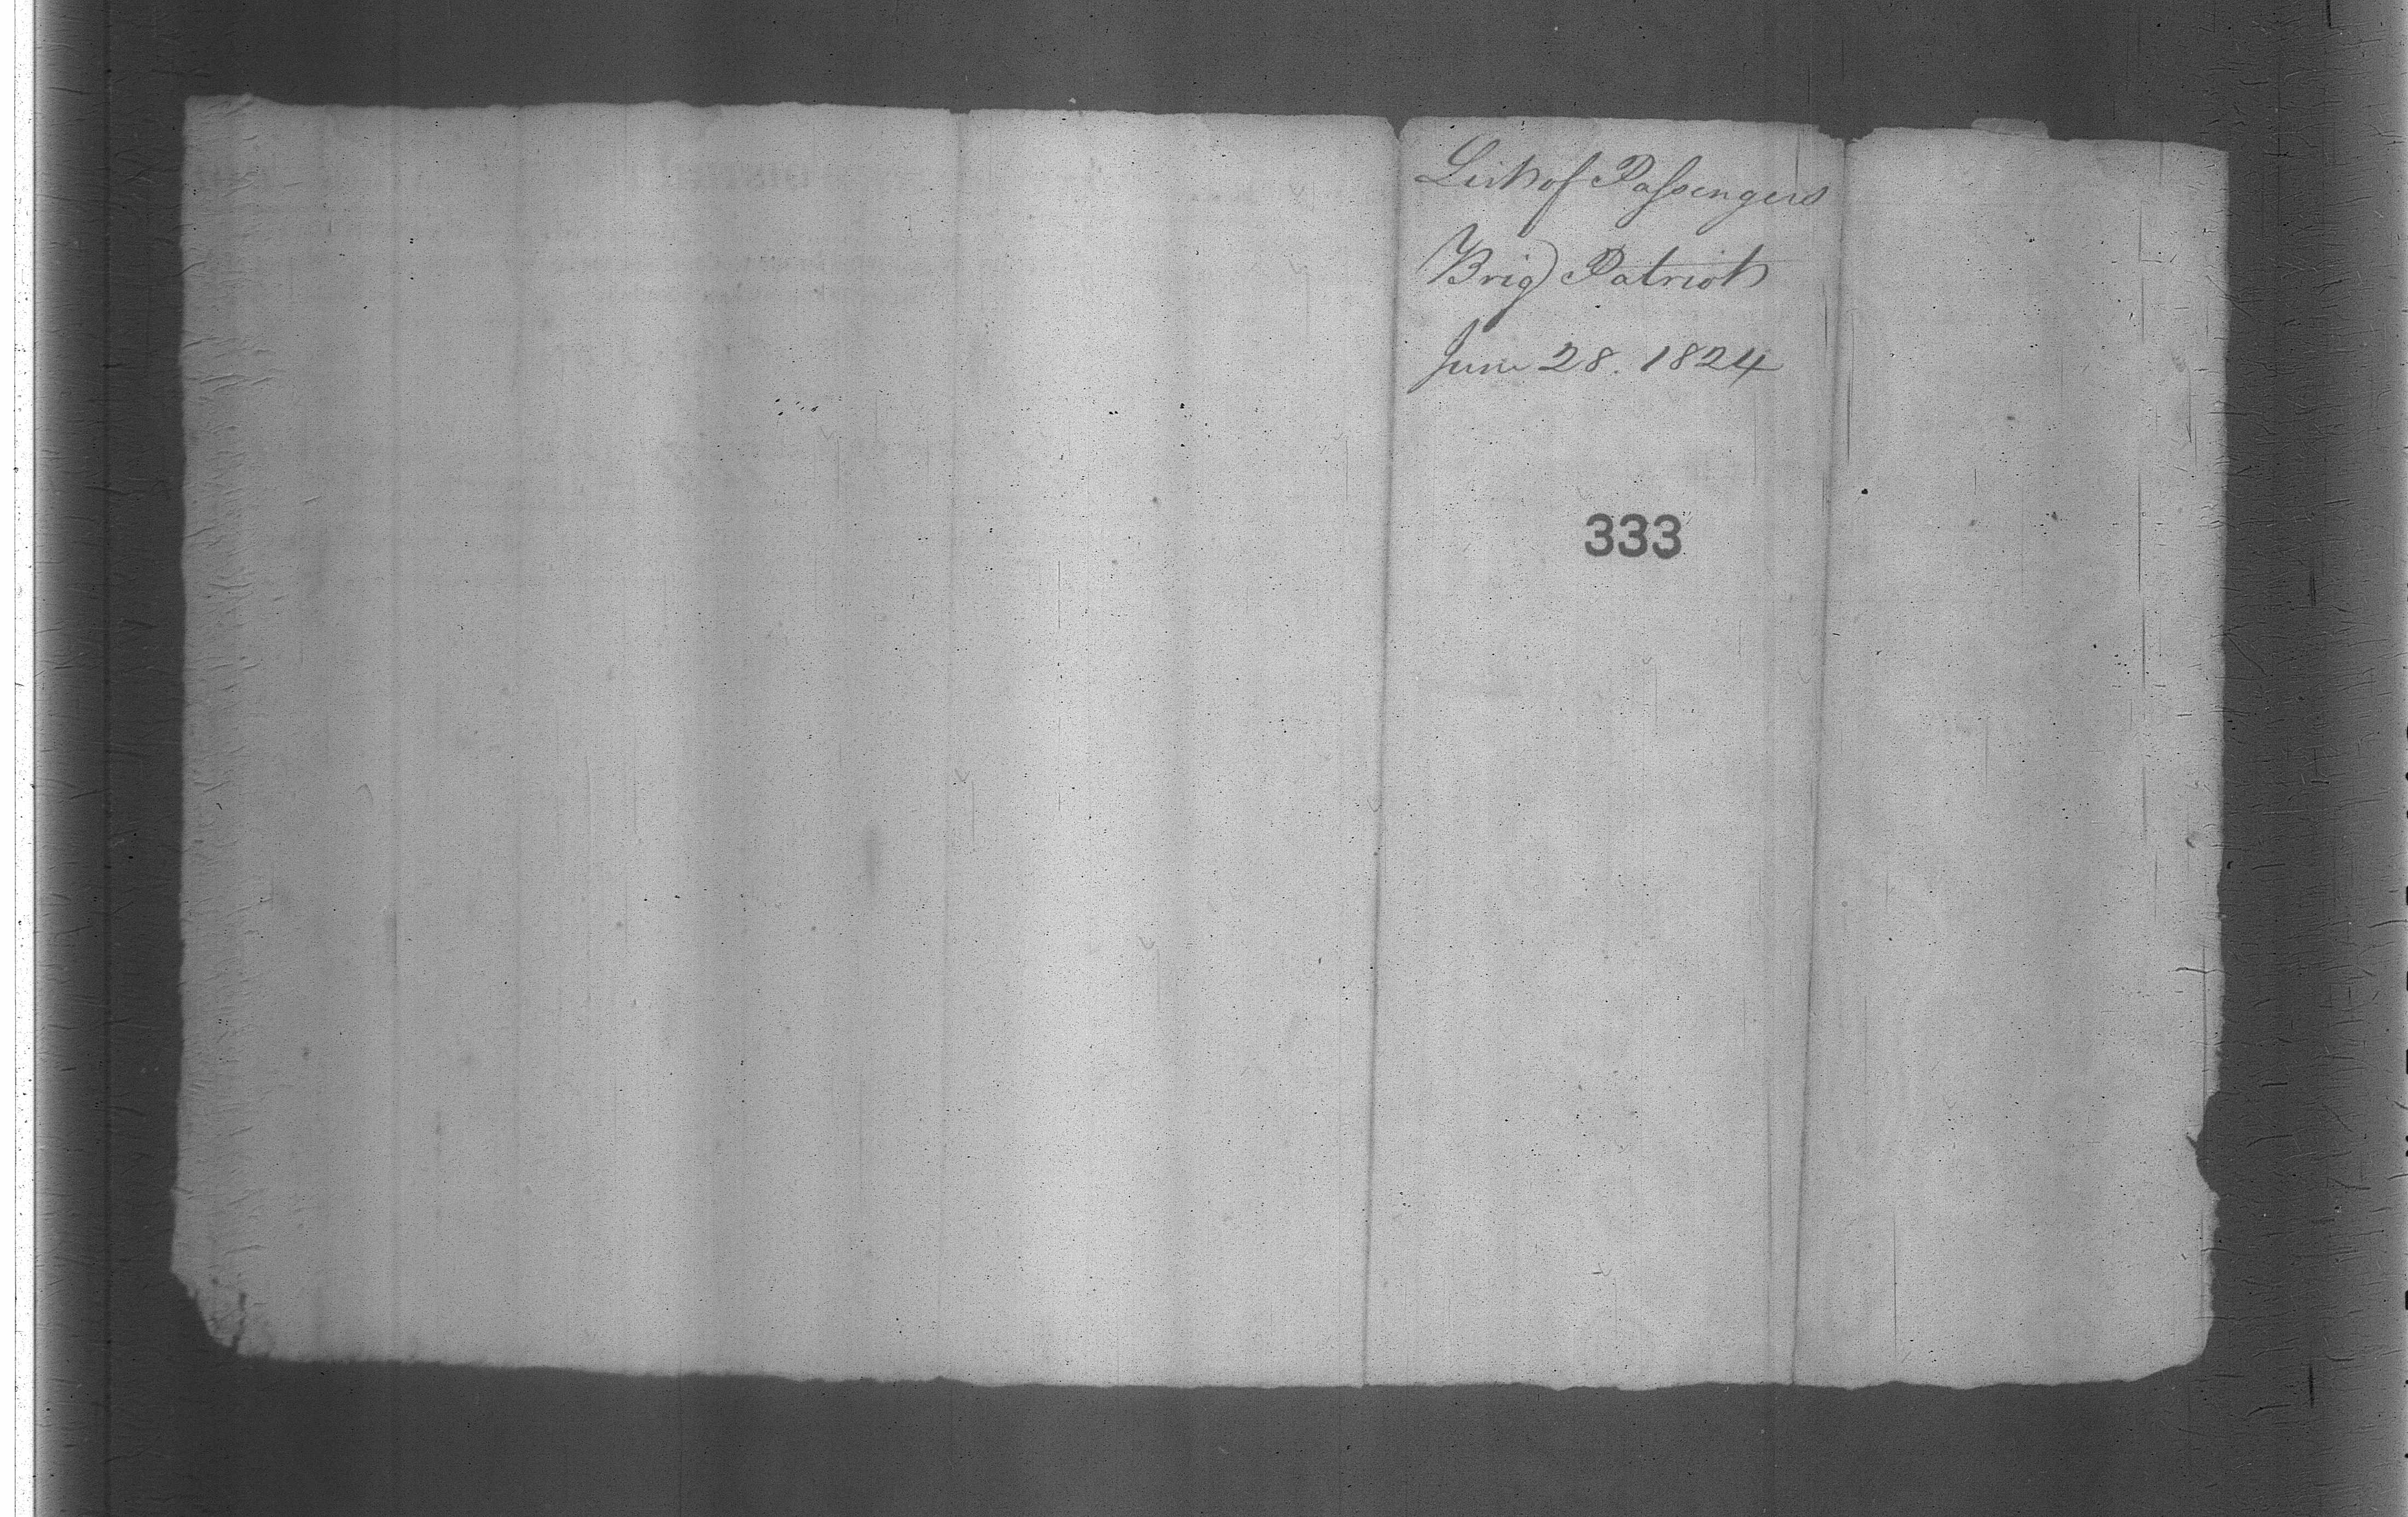 List of Passengers
Brig Patriot
June 28. 1824
333